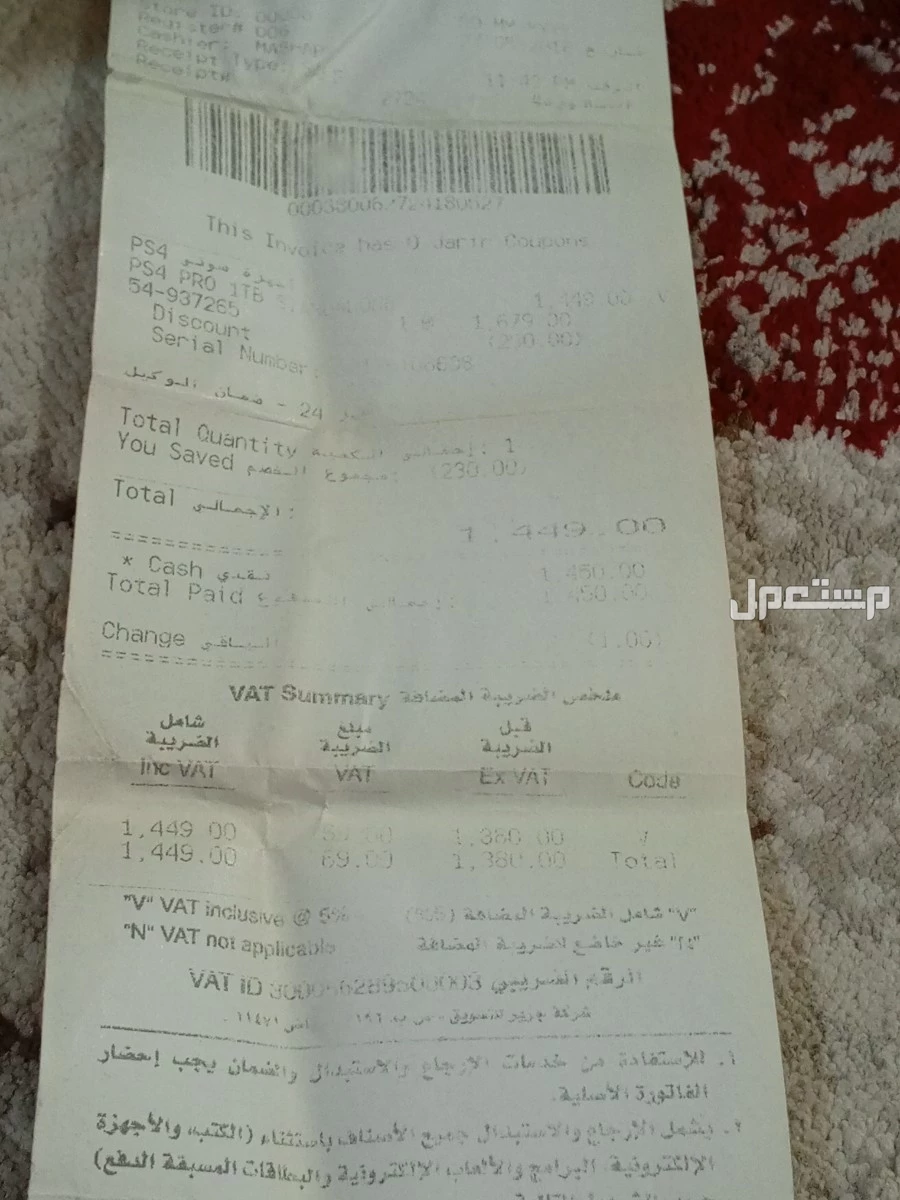 Store ID:
Register# 006
Cashier:
Receipt Type:
Receipt#
This Invoice has 0 Jarir Coupons
PS4 أجهزة سوني
PS4 PRO 1TB
1,449.00 V
54-937265
1 @ 1,679.00
Discount (230.00)
Serial Number:
24 - ضمان الوكيل
Total Quantity إجمالي الكمية: 1
You Saved مجموع الخصم: (230.00)
Total الإجمالي:
1,449.00
* Cash نقدي 1,450.00
Total Paid إجمالي المدفوع: 1,450.00
Change الباقي (1.00)
مستعمل
VAT Summary ملخص الضريبة المضافة
شامل الضريبة مبلغ الضريبة قبل الضريبة
Inc VAT VAT Ex VAT Code
1,449.00 69.00 1,380.00 V
1,449.00 69.00 1,380.00 Total
"V" VAT inclusive @ 5% "V" شامل الضريبة المضافة (%5)
"N" VAT not applicable "N" غير خاضع لضريبة المضافة
VAT ID الرقم الضريبي
شركة جرير للتسويق - ص ب. ١٩٦ ١١٤٧١
١. للإستفادة من خدمات الإرجاع والاستبدال والضمان يجب إحضار
الفاتورة الأصلية.
٢. يشمل الإرجاع والاستبدال جميع الأصناف باستثناء (الكتب، والأجهزة
الإلكترونية، البرامج والألعاب الإلكترونية والبطاقات المسبقة الدفع)